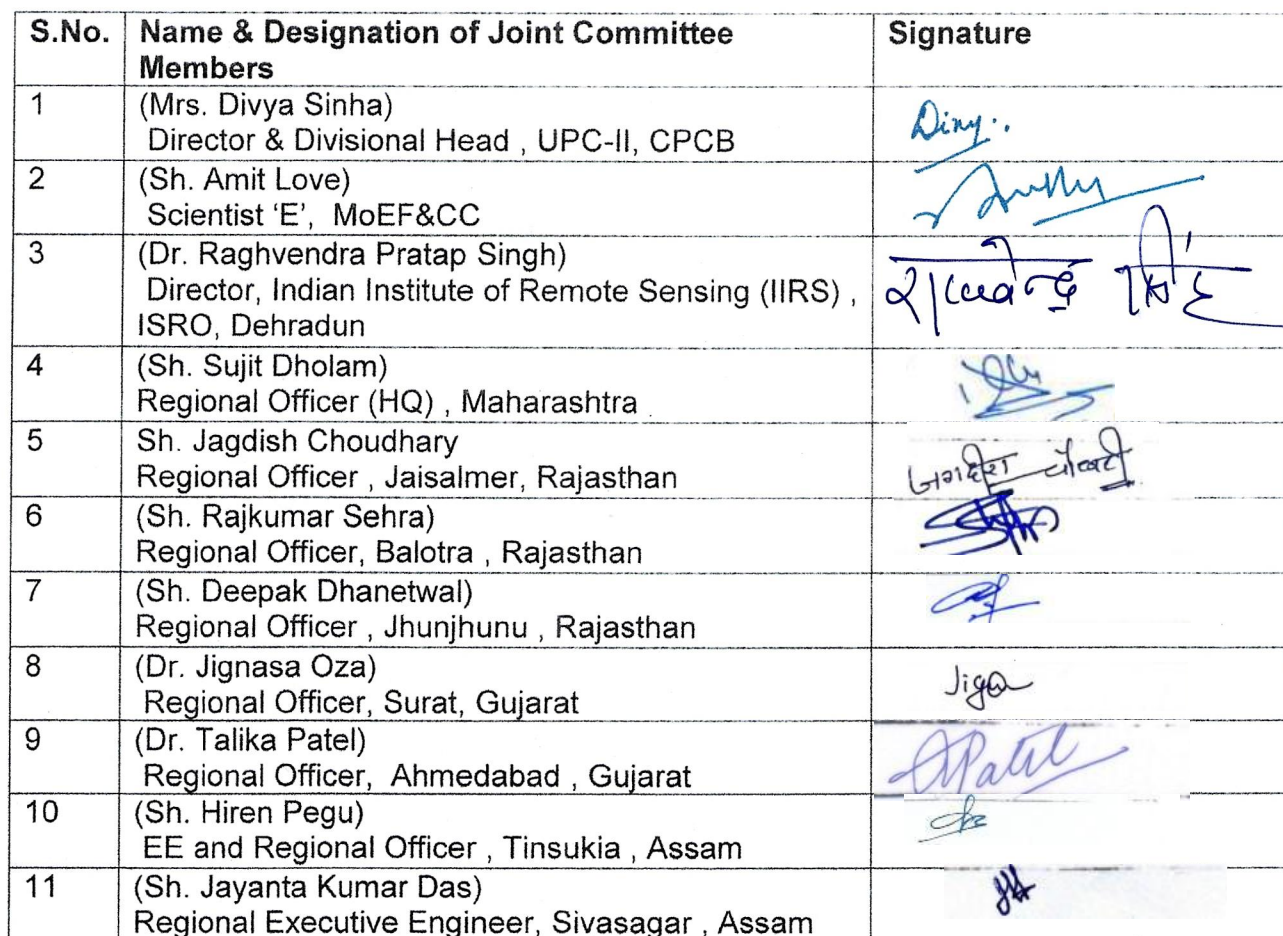 S.No. Name & Designation of Joint Committee Members Signature
1 (Mrs. Divya Sinha)
Director & Divisional Head , UPC-II, CPCB
2 (Sh. Amit Love)
Scientist ‘E’, MoEF&CC
3 (Dr. Raghvendra Pratap Singh)
Director, Indian Institute of Remote Sensing (IIRS) ,
ISRO, Dehradun
राघवेन्द्र सिंह
4 (Sh. Sujit Dholam)
Regional Officer (HQ) , Maharashtra
5 Sh. Jagdish Choudhary
Regional Officer , Jaisalmer, Rajasthan
जगदीश चौधरी
6 (Sh. Rajkumar Sehra)
Regional Officer, Balotra , Rajasthan
7 (Sh. Deepak Dhanetwal)
Regional Officer , Jhunjhunu , Rajasthan
8 (Dr. Jignasa Oza)
Regional Officer, Surat, Gujarat
9 (Dr. Talika Patel)
Regional Officer, Ahmedabad , Gujarat
Patel
10 (Sh. Hiren Pegu)
EE and Regional Officer , Tinsukia , Assam
11 (Sh. Jayanta Kumar Das)
Regional Executive Engineer, Sivasagar , Assam